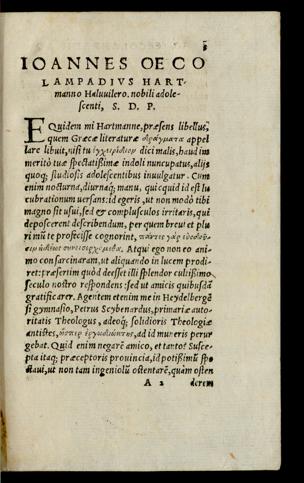 IOANNES OECO
LAMPADIVS HART-
manno Haluuilero. nobili adole-
scenti, S. D. P.
EQuidem mi Hartmanne, præsens libellus,
quem Græcæ literaturæ δράγματα appel
lare libuit, uisi tu ἐγχειρίδιον dici malis, haud im
meritò tuæ spectatißimæ indoli nuncupatus, alijs
quoq; studiosis adolescentibus inuulgatur. Cum
enim nocturna, diurnáq; manu, quicquid id est lu
cubrationum uersans: id egeris, ut non modò tibi
magno sit usui, sed & complusculos irritâris, qui
deposcerent describendum, per quem breui et plu
rimū te profecisse cognorint,
Atqui ego non eo ani
mo consarcinaram, ut aliquando in lucem prodi-
ret: præsertim quòd deesset illi splendor cultißimo
seculo nostro respondens: sed ut amicis quibusdā
gratificarer. Agentem etenim me in Heydelbergē
si gymnasio, Petrus Scybenardus, primariæ auto-
ritatis Theologus, adeoq; solidioris Theologiæ
antistes, ad id muneris perur
gebat. Quid enim negarē amico, et tanto? Susce-
pta itaq; præceptoris prouincia, id potißimū spe
ctaui, ut non tam ingeniolū ostentarē, quàm osten
A 2 derem